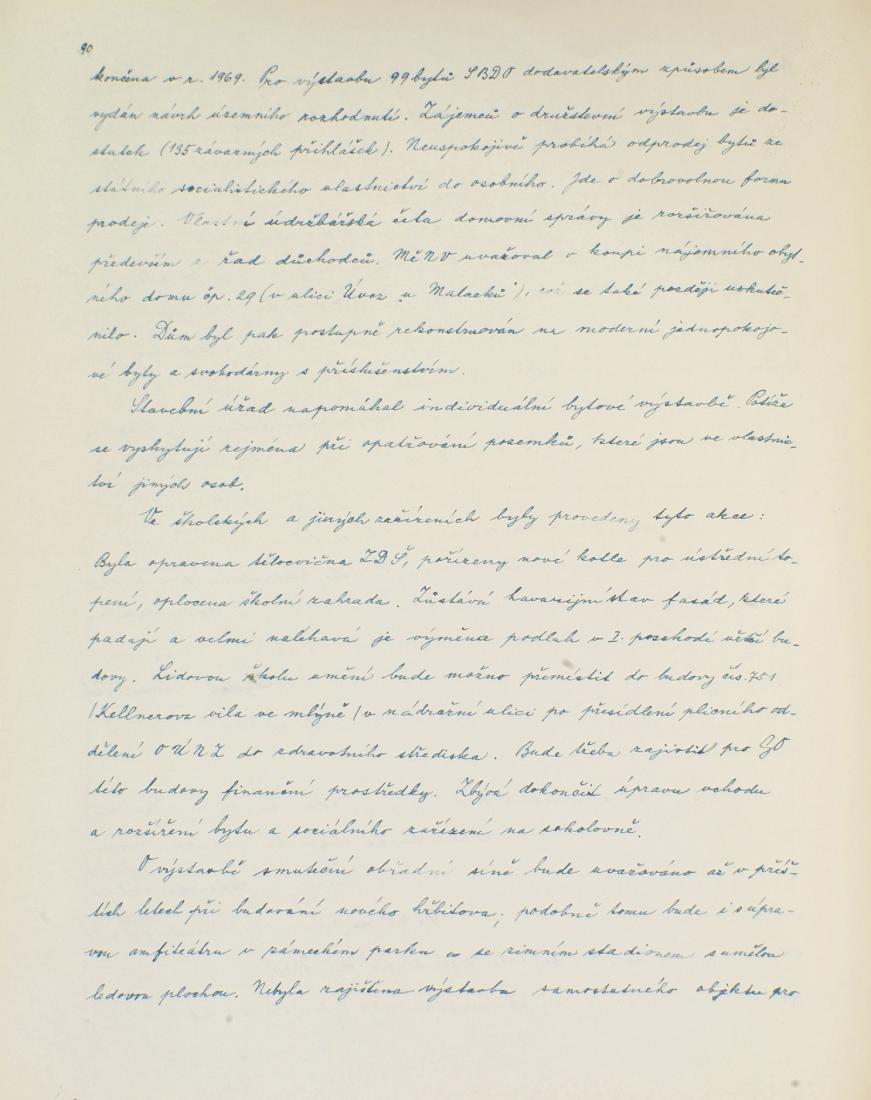 90
končena v r. 1969. Pro výstavbu 99 bytů SBD O dodavatelským způsobem byl
vydán návrh územního rozhodnutí. Zájemců o družstevní výstavbu je do-
statek (135 závazných přihlášek). Neuspokojivě probíhá odprodej bytů ze
státního socialistického vlastnictví do osobního. Jde o dobrovolnou formu
prodeje. Vlastní údržbářská četa domovní správy je rozšiřována
především z řad důchodců. MěNV uvažoval o koupi nájemního obyt-
ného domu čp. 29 (v ulici Úvoz „u Malacků"), což se také později uskuteč-
nilo. Dům byl pak postupně rekonstruován na moderní jednopokojo-
vé byty a svobodárny s příslušenstvím.
Stavební úřad napomáhal individuální bytové výstavbě. Potíže
se vyskytují zejména při opatřování pozemků, které jsou ve vlastnic-
tví jiných osob.
Ve školských a jiných zařízeních byly provedeny tyto akce:
Byla opravena tělocvična ZDŠ, pořízeny nové kotle pro ústřední to-
pení, oplocena školní zahrada. Zůstává havarijní stav fasád, které
padají a velmi naléhavá je výměna podlah v I. poschodí větší bu-
dovy. Lidovou školu umění bude možno přemístit do budovy čís. 751
/Kellnerova vila ve mlýně/ v nádražní ulici po přesídlení plicního od-
dělení OÚNZ do zdravotního střediska. Bude třeba zajistit pro GO
této budovy finanční prostředky. Zbývá dokončit úpravu vchodu
a rozšíření bytu a sociálního zařízení na sokolovně.
O výstavbě smuteční obřadní síně bude uvažováno až v příš-
tích letech při budování nového hřbitova; podobně tomu bude i s úpra-
vou amfiteátru v zámeckém parku a se zimním stadionem s umělou
ledovou plochou. Nebyla zajištěna výstavba samostatného objektu pro